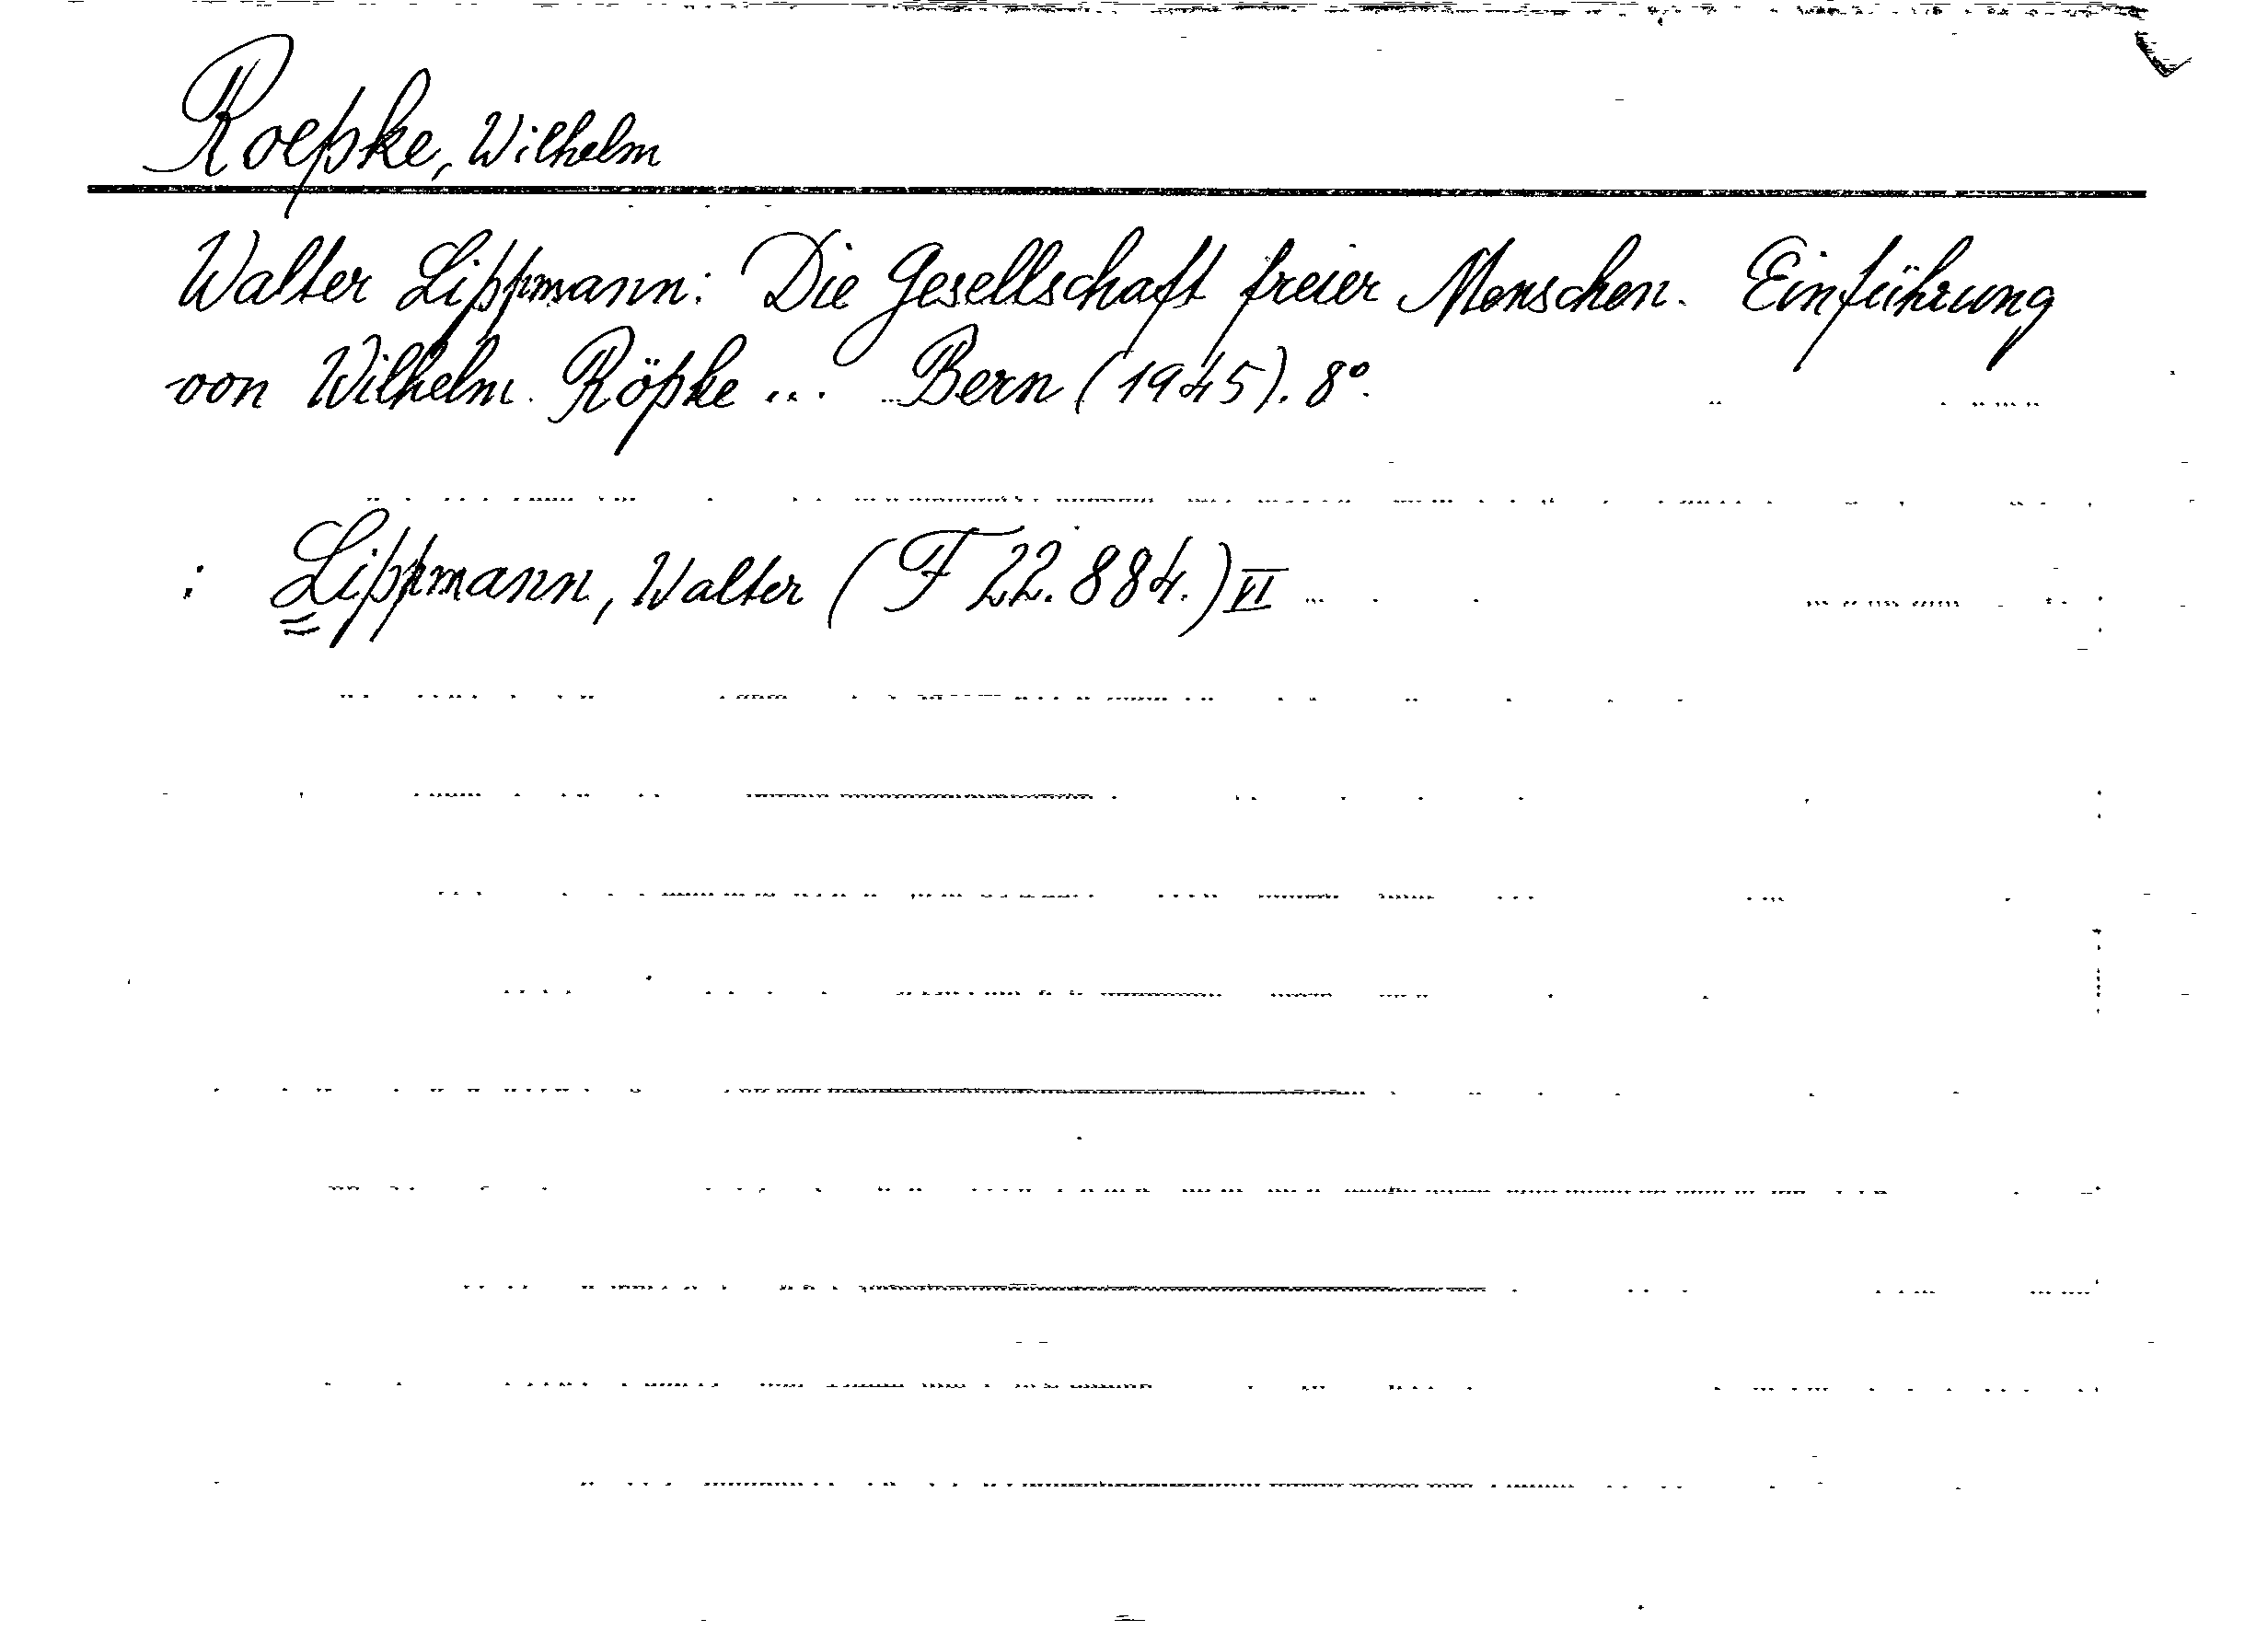 Roepke, Wilhelm
Walter Lippmann: Die Gesellschaft freier Menschen. Einführung
von Wilhelm Röpke ... Bern (1945). 8°.
: Lippmann, Walter (F 22.884.) VI